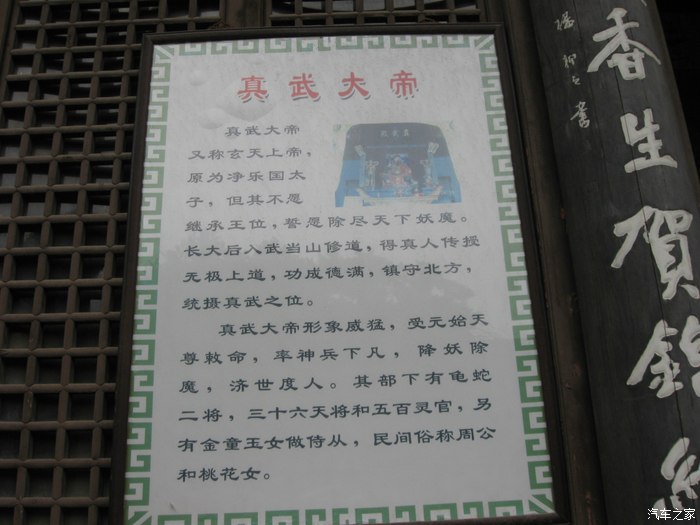 真武大帝
真武大帝
又称玄天上帝，
原为净乐国太
子，但其不愿
继承王位，誓愿除尽天下妖魔。
长大后入武当山修道，得真人传授
无极上道，功成德满，镇守北方，
统摄真武之位。
真武大帝形象威猛，受元始天
尊敕命，率神兵下凡，降妖除
魔，济世度人。其部下有龟蛇
二将，三十六天将和五百灵官，另
有金童玉女做侍从，民间俗称周公
和桃花女。
香生贺锦
汽车之家